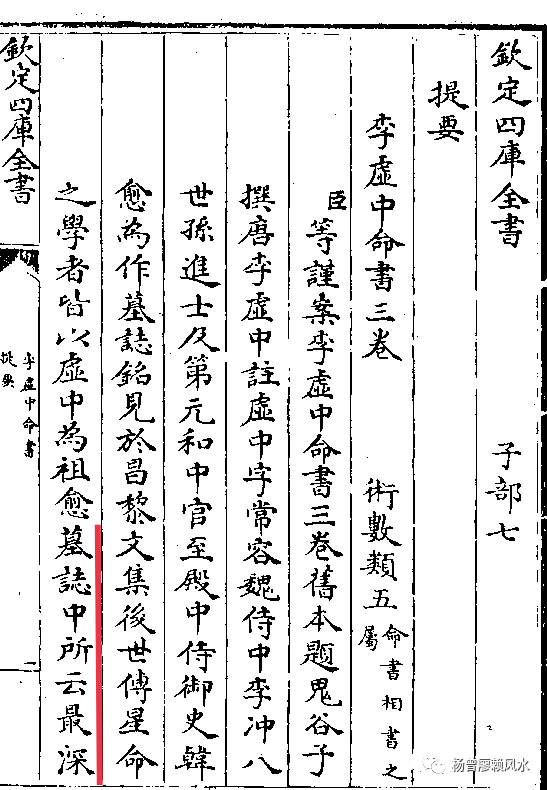 欽定四庫全書
子部七
提要
術數類五
命書相書之
屬
李虛中命書三卷
臣
等謹案李虛中命書三卷舊本題鬼谷子
撰唐李虛中註虛中字常容魏侍中李沖八
世孫進士及第元和中官至殿中侍御史韓
愈為作墓誌銘見於昌黎文集後世傳星命
之學者皆以虛中為祖愈墓誌中所云最深
欽定四庫全書
李虛中命書
提要
一
杨曾廖赖风水